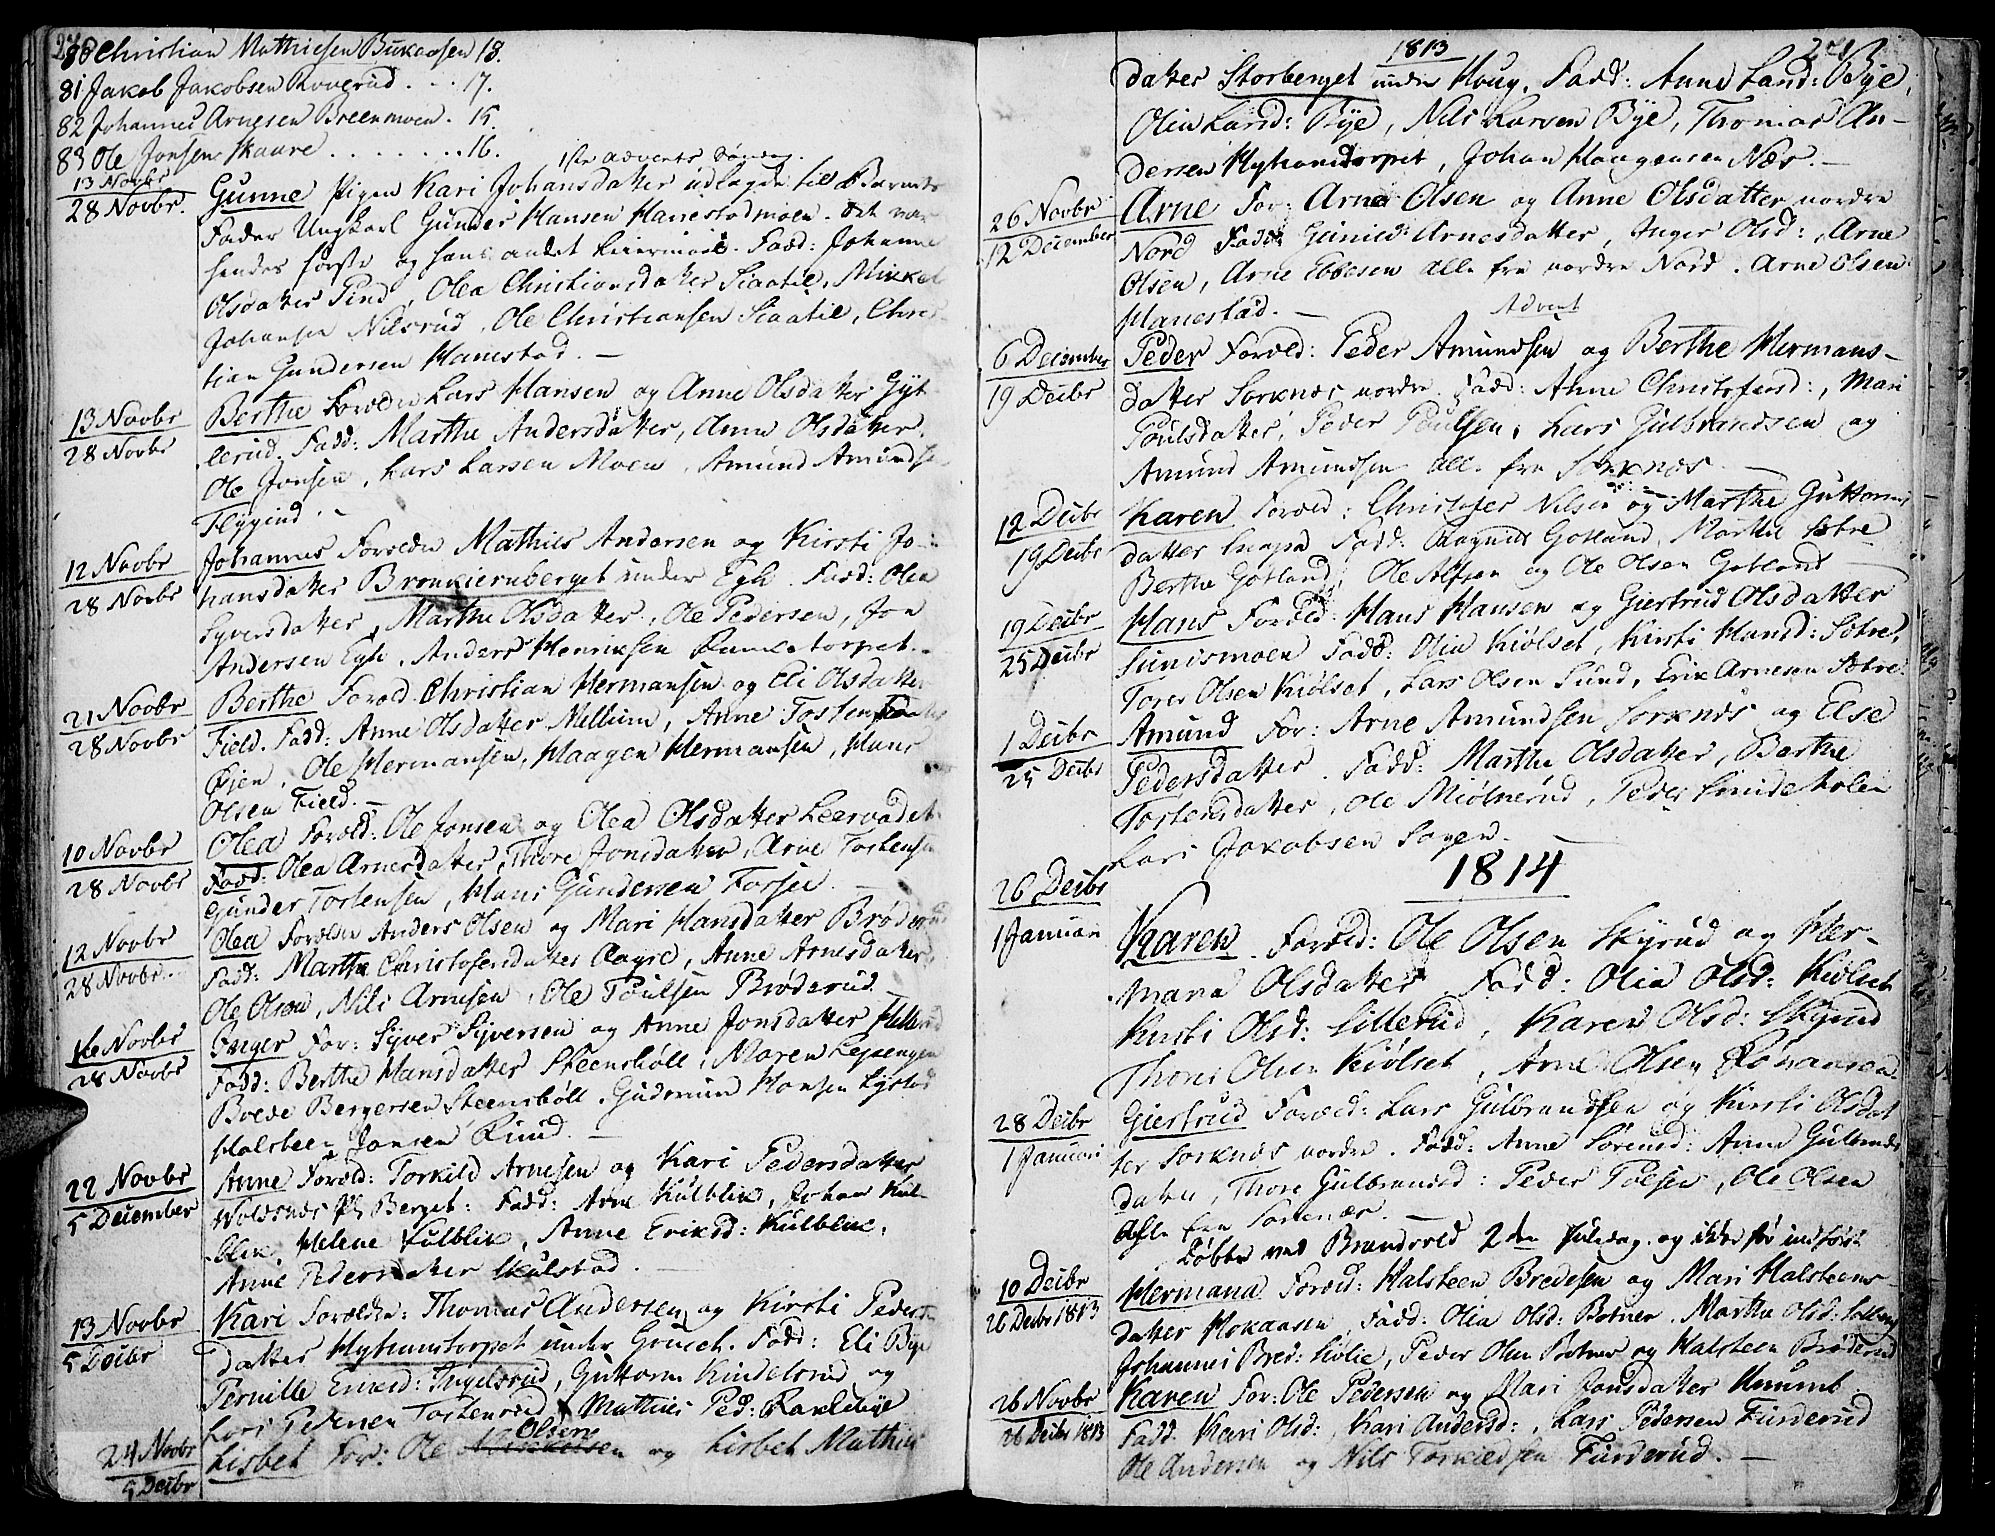 80 Christian Mathiesen Bukaasen 18.
81 Jakob Jakobsen Roverud . . . 17.
82 Johannes Arnesen Breenmoen . 15.
83 Ole Jonsen Skaare . . . . . . . 16.
1ste Advents Søgndag
13 Novbr
28 Novbr.
Gunne Pigen Kari Johansdatter udlagde til Barnets
Fader Ungkarl Gunder Hansen Hanestadmoen. Det var
hendes første og hans andet Leiermaal. Fadd: Johanne
Olsdatter Pind, Olea Christiansdatter Skaatil, Mikkel
Johansen Nilsrud, Ole Christiansen Skaatil, Chris-
tian Gundersen Hanestad. —
13 Novbr
28 Novbr
Berthe Forældre Lars Hansen og Anne Olsdatter Gyt-
lerud. Fadd: Marthe Andersdatter, Anne Olsdatter,
Ole Jonsen, Lars Larsen Moen, Amund Amundse
Flygind. —
12 Novbr
28 Novbr
Johannes Forældre Mathies Andersen og Kirsti Jo-
hansdatter Bronkiernberget under Egh. Fadd: Olea
Syversdatter, Marthe Olsdatter, Ole Pedersen, Jon
Andersen Egh, Anders Henriksen Runketorpet. —
21 Novbr
28 Novbr
Berthe Foræld. Christian Hermansen og Eli Olsdatter
Field. Fadd: Anne Olsdatter Mellum, Anne Tostensdatter
Øien, Ole Hermansen, Haagen Hermansen, Hans
Olsen Field. —
10 Novbr
28 Novbr
Olea Foræld: Ole Jonsen og Olea Olsdatter Leervadet.
Fadd: Olea Arnesdatter, Thore Jonsdatter, Arne Tostensen
Gunder Tostensen, Hans Gundersen Torsen. —
12 Novbr
28 Novbr.
Olea Forældre Anders Olsen og Mari Hansdatter Brøderud
Fadd: Marthe Christofersdatter Aagre, Anne Arnesdatter,
Ole Olsen, Nils Arnesen, Ole Poulsen Brøderud
16 Novbr
28 Novbr
Inger For: Syver Syversen og Anne Jonsdatter Hellerud
Fadd: Berthe Hansdatter Steensböll, Maren Lejsengen
Brede Bergersen Steensböll. Gudmund Hansen Lystad
Halsteen Jansen Ruud. —
22 Novbr
5 December
Anne Foræld: Torkild Arnesen og Kari Pedersdatter
Woldsnæs Pl: Berget: Fadd: Arne Kulblik, Johan Kul-
blik, Helene Kulblik, Anne Eriksd: Kulblik,
Anne Pedersdatter Skulstad. —
13 Novbr
5 Decbr
Kari Forældre: Thomas Andersen og Kirsti Peders-
datter Hytiomstorpet under Grinet. Fadd: Eli Bye
Pernille Ernesd: Ingelsrud, Guttorm Kindelsrud og
Lars Pedersen Tostenrud, Mathies Ped: Rankebye
24 Novbr
5 Decbr
Lisbet For: Ole Olsen og Lisbet Mathies
1813
271
datter Storberget under Houg. Fadd: Anne Land: Bye,
Olia Larsd: Bye, Nils Larsen Bye, Thomas An-
dersen Hytiomstorpet, Johan Haagensen Næs. —
26 Novbr
12 December
Arne For: Arne Olsen og Anne Olsdatter nordre
Nord Fadd: Gunild Arnesdatter, Inger Olsd:, Arne
Olsen, Arne Ebbesen alle fra nordre Nord. Arne Olsen
Hanestad. —
Advent
6 December
19 Decbr
Peder Foræld: Peder Amundsen og Berthe Hermans-
datter Sorknes nordre, Fadd: Anne Christofersd:, Mari
Poulsdatter, Peder Poulsen, Lars Gulbrandsen og
Amund Amundsen alle fra Sorknæs. —
12 Decbr
19 Decbr
Karen Foræld: Christofer Nilsen og Marthe Guttorms
datter Fadd: Ragnild Gotland, Marthe Sætre
Berthe Gotland, Ole Alfsen og Ole Olsen Gotland —
19 Decbr
25 Decbr
Hans Foræld: Hans Hansen og Giertrud Olsdatter
Sundsmoen Fadd: Olia Kiölset, Kirsti Hansd: Sætre,
Tores Olsen Kiölset, Lars Olsen Sund, Erik Arnesen Sætre
1 Decbr
25 Decbr
Amund For: Arne Amundsen Sorknæs og Else
Pedersdatter. Fadd: Marthe Olsdatter, Berthe
Tostensdatter, Ole Miölnerud, Peder Lindeholen
Lars Jakobsen Sagen. —
1814
26 Decbr
1 Januari
Karen. Foræld: Ole Olsen Skyrud og Her-
mana Olsdatter. Fadd: Olia Olsd: Kiölset
Kirsti Olsd: Sillerud, Karen Olsd: Skyrud
Thores Olsen Kiölset, Arne Olsen Rönaasen
28 Decbr
1 Januari
Giertrud Foræld: Lars Gulbrandsen og Kirsti Olsdat
ter Sorknæs nordre. Fadd: Anne Sörensd: Anne Gulbrands
datter, Thore Gulbrandsd: Peder Polsen, Ole Olsen
Alle fra Sorknæs. —
Döbbt ved Brandvold 2den Juledag og ikke før indført
10 Decbr
26 Decbr 1813
Hermana Foræld: Halsteen Bredesen og Mari Halsteens-
datter Hokaasen, Fadd: Olia Olsd: Botner, Marthe Olsd:
Johannes Bred: Holie, Peder Olsen Botner og Halsteen Brøderud
26 Novbr
26 Decbr 1813
Karen For: Ole Pedersen og Mari Jonsdatter Unumb
Fadd Kari Olsd:, Kari Andersd:, Lars Pedersen Furderud
Ole Andersen og Nils Torkildsen Furderud. —